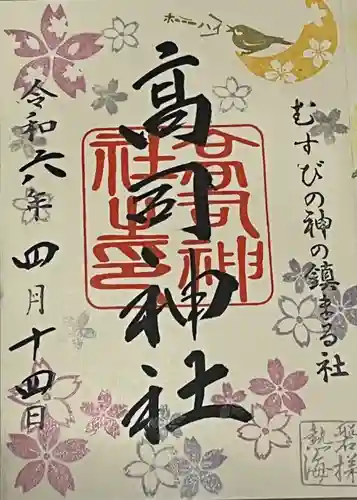 ホーホケキョ
むすびの神の鎮まる社
高司神社
高司神社之印
令和六年四月十四日